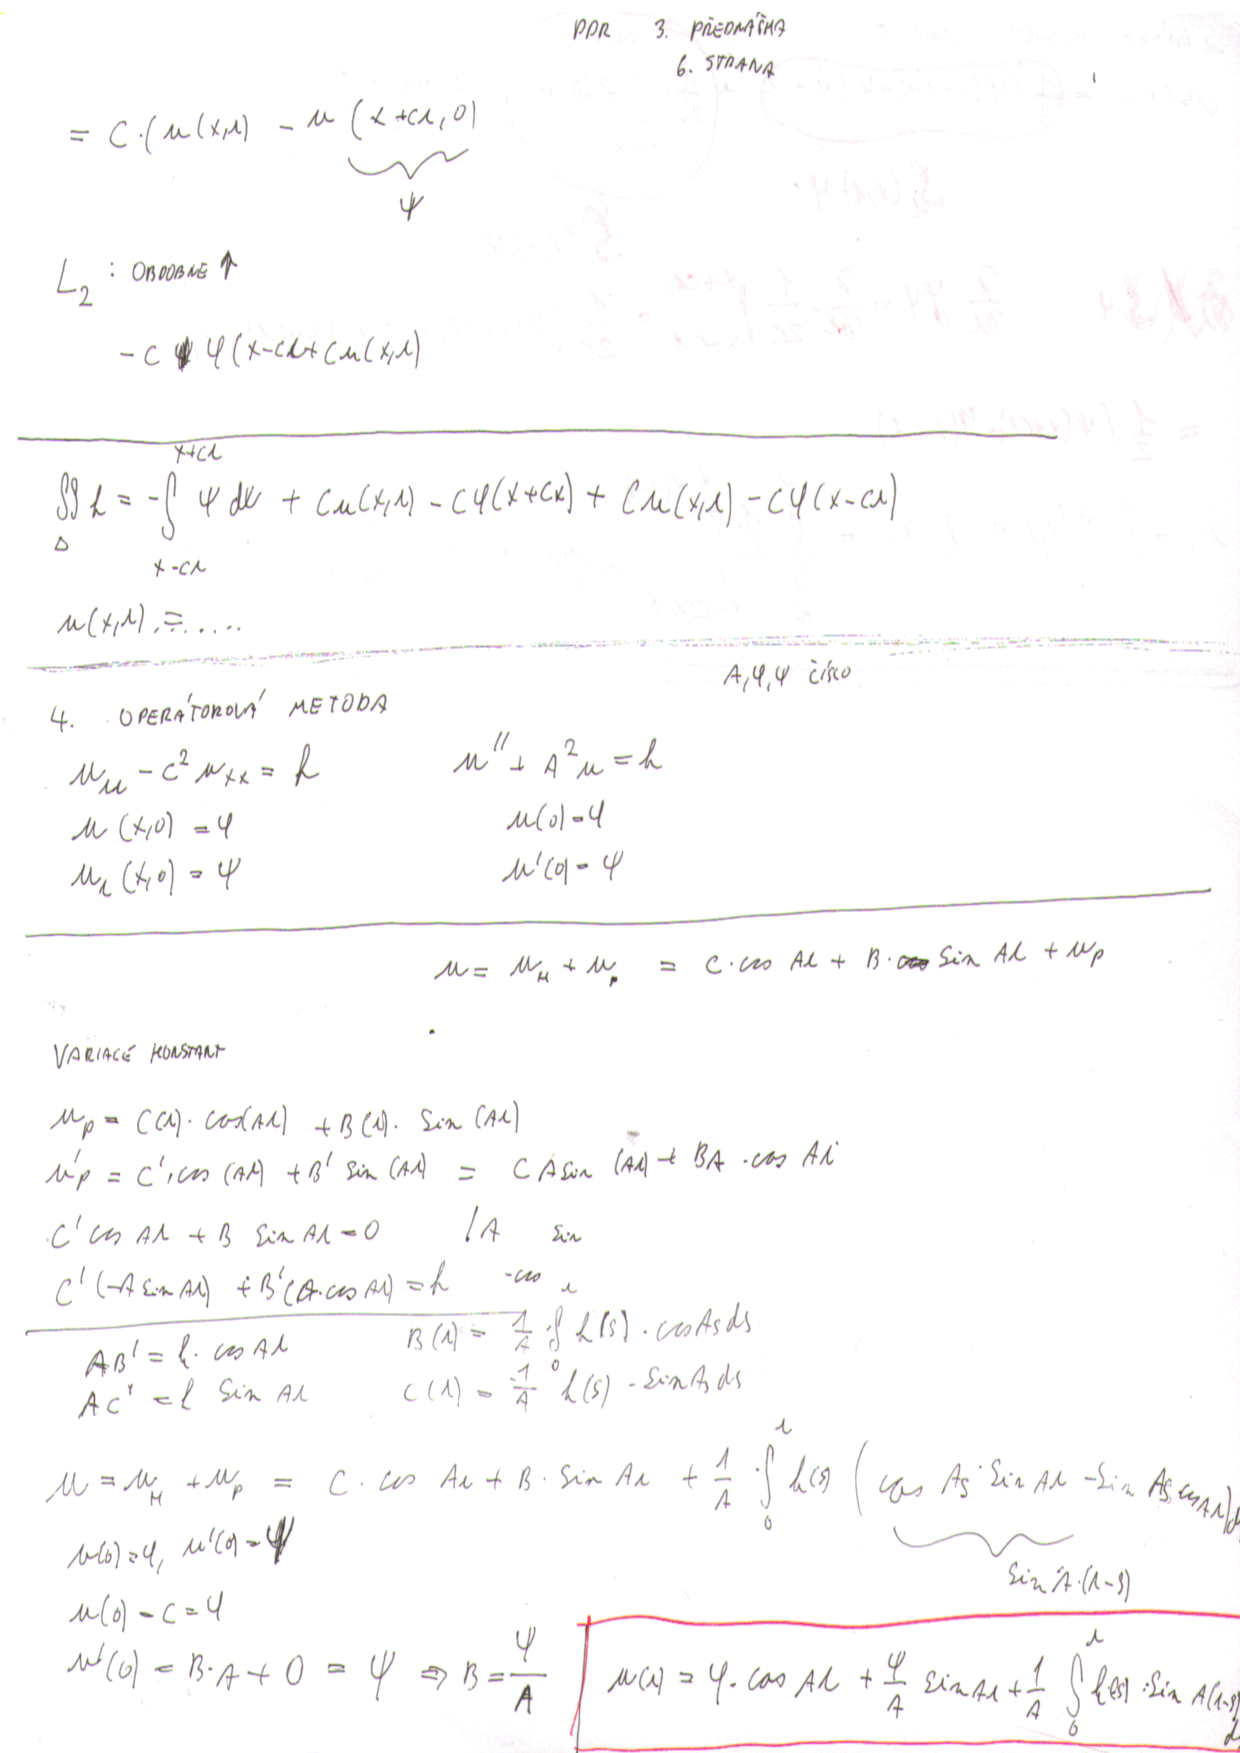 PDR 3. PŘEDNÁŠKA
6. STRANA
= C·(u(x,t) - u(x+ct,0)
ψ
L₂ : OBDOBNĚ ↑
-C φ(x-ct+Cu(x,t)
∬ h = -∫ ψ dx + Cu(x,t) - Cφ(x+Cx) + Cu(x,t) - Cφ(x-ct)
Δ
x+ct
x-ct
u(x,t) = .....
A, φ, ψ číslo
4. OPERÁTOROVÁ METODA
u_tt - c² u_xx = h   u'' + A²u = h
u(x,0) = φ   u(0) = φ
u_t(x,0) = ψ   u'(0) = ψ
u = u_H + u_p = C·cos At + B· sin At + u_p
VARIACE KONSTANT
u_p = C(t)·cos(At) + B(t)· sin(At)
u'_p = C'·cos(At) + B' sin(At) = CA sin(At) + BA·cos At
C' cos At + B sin At = 0   /A   sin
C'(-A sin At) + B'(A·cos At) = h   -cos
AB' = h· cos At   B(t) = 1/A ∫₀ᵗ h(s)·cos As ds
AC' = h sin At   C(t) = -1/A h(s) - sin As ds
u = u_H + u_p = C·cos At + B· sin At + 1/A·∫₀ᵗ h(s) (cos As· sin At - sin As cos At) d
sin A·(t-s)
u(0)=φ, u'(0)=ψ
u(0) - C = φ
u'(0) = B·A + 0 = ψ ⇒ B = ψ/A
u(t) = φ· cos At + ψ/A sin At + 1/A ∫₀ᵗ h(s)· sin A(t-s) d